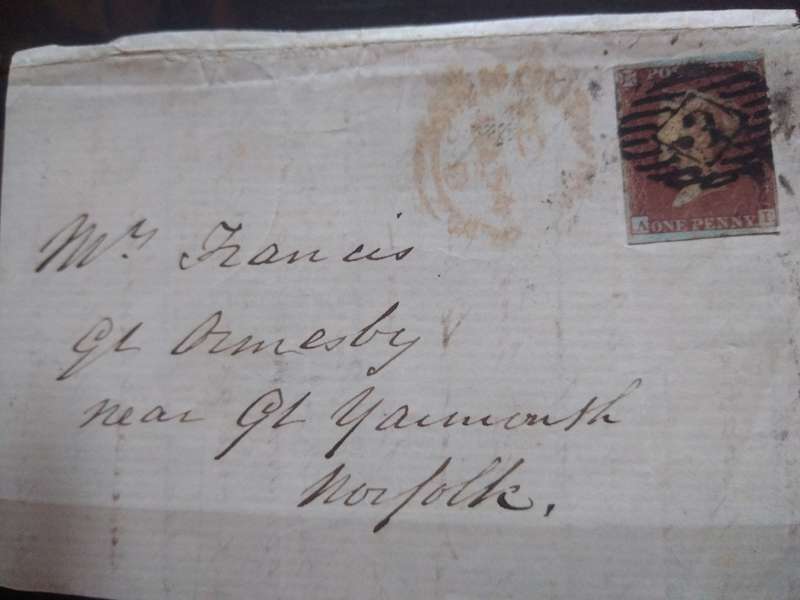 ONE PENNY
A
Mrs Francis
Gt Ormesby
near Gt Yarmouth
Norfolk.